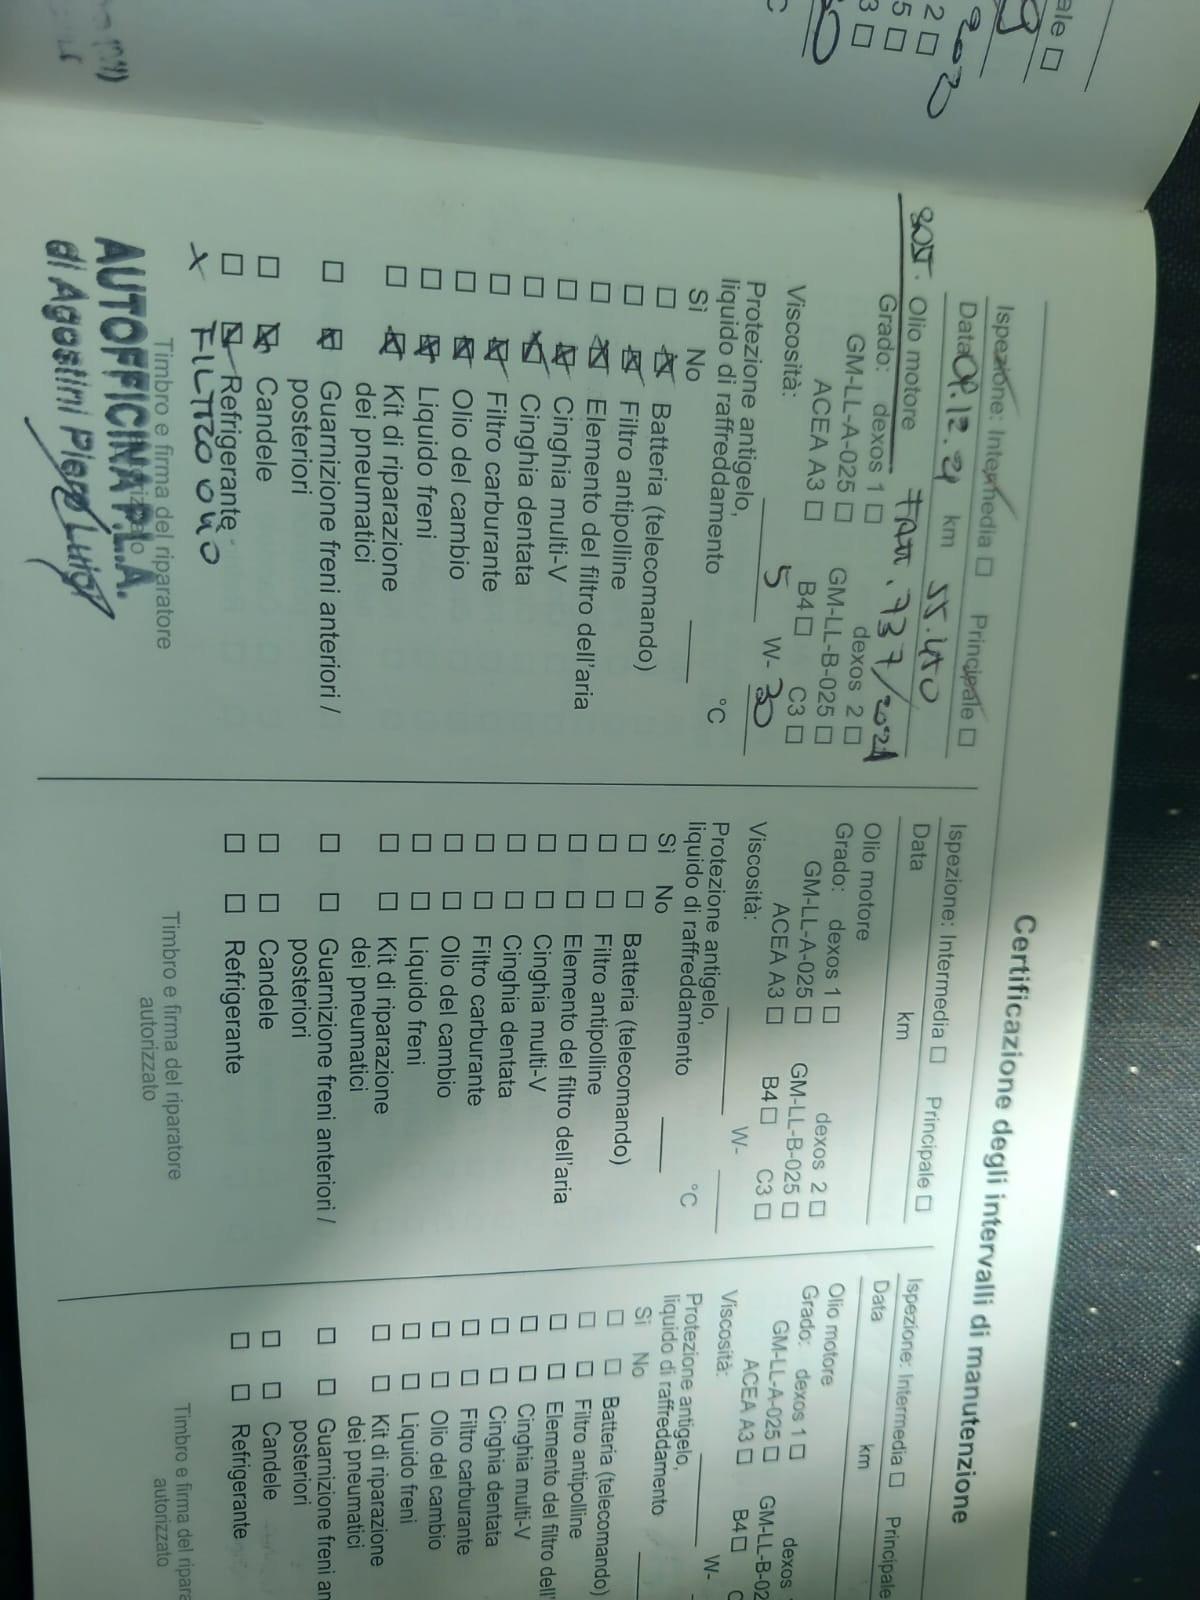 Certificazione degli intervalli di manutenzione
Ispezione: Intermedia ☐ Principale ☐
Data 09.12.21 km 55.450
SOST. Olio motore FATT. 737/2021
Grado: dexos 1 ☐ dexos 2 ☐
GM-LL-A-025 ☐ GM-LL-B-025 ☐
ACEA A3 ☐ B4 ☐ C3 ☐
Viscosità: 5 W- 30
Protezione antigelo,
liquido di raffreddamento °C
Sì No
☐ ☒ Batteria (telecomando)
☐ ☒ Filtro antipolline
☐ ☒ Elemento del filtro dell'aria
☐ ☒ Cinghia multi-V
☐ ☒ Cinghia dentata
☐ ☒ Filtro carburante
☐ ☒ Olio del cambio
☐ ☒ Liquido freni
☐ ☒ Kit di riparazione
dei pneumatici
☐ ☒ Guarnizione freni anteriori /
posteriori
☐ ☒ Candele
☐ ☒ Refrigerante
X FILTRO OLIO
Timbro e firma del riparatore
AUTOFFICINA P.L.A.
di Agostini Piero Luigi
Ispezione: Intermedia ☐ Principale ☐
Data km
Olio motore
Grado: dexos 1 ☐ dexos 2 ☐
GM-LL-A-025 ☐ GM-LL-B-025 ☐
ACEA A3 ☐ B4 ☐ C3 ☐
Viscosità: W-
Protezione antigelo,
liquido di raffreddamento °C
Sì No
☐ ☐ Batteria (telecomando)
☐ ☐ Filtro antipolline
☐ ☐ Elemento del filtro dell'aria
☐ ☐ Cinghia multi-V
☐ ☐ Cinghia dentata
☐ ☐ Filtro carburante
☐ ☐ Olio del cambio
☐ ☐ Liquido freni
☐ ☐ Kit di riparazione
dei pneumatici
☐ ☐ Guarnizione freni anteriori /
posteriori
☐ ☐ Candele
☐ ☐ Refrigerante
Timbro e firma del riparatore
autorizzato
Ispezione: Intermedia ☐ Principale
Data km
Olio motore
Grado: dexos 1 ☐ dexos
GM-LL-A-025 ☐ GM-LL-B-02
ACEA A3 ☐ B4 ☐ C
Viscosità: W-
Protezione antigelo,
liquido di raffreddamento
Sì No
☐ ☐ Batteria (telecomando)
☐ ☐ Filtro antipolline
☐ ☐ Elemento del filtro dell'
☐ ☐ Cinghia multi-V
☐ ☐ Cinghia dentata
☐ ☐ Filtro carburante
☐ ☐ Olio del cambio
☐ ☐ Liquido freni
☐ ☐ Kit di riparazione
dei pneumatici
☐ ☐ Guarnizione freni an
posteriori
☐ ☐ Candele
☐ ☐ Refrigerante
Timbro e firma del ripara
autorizzato